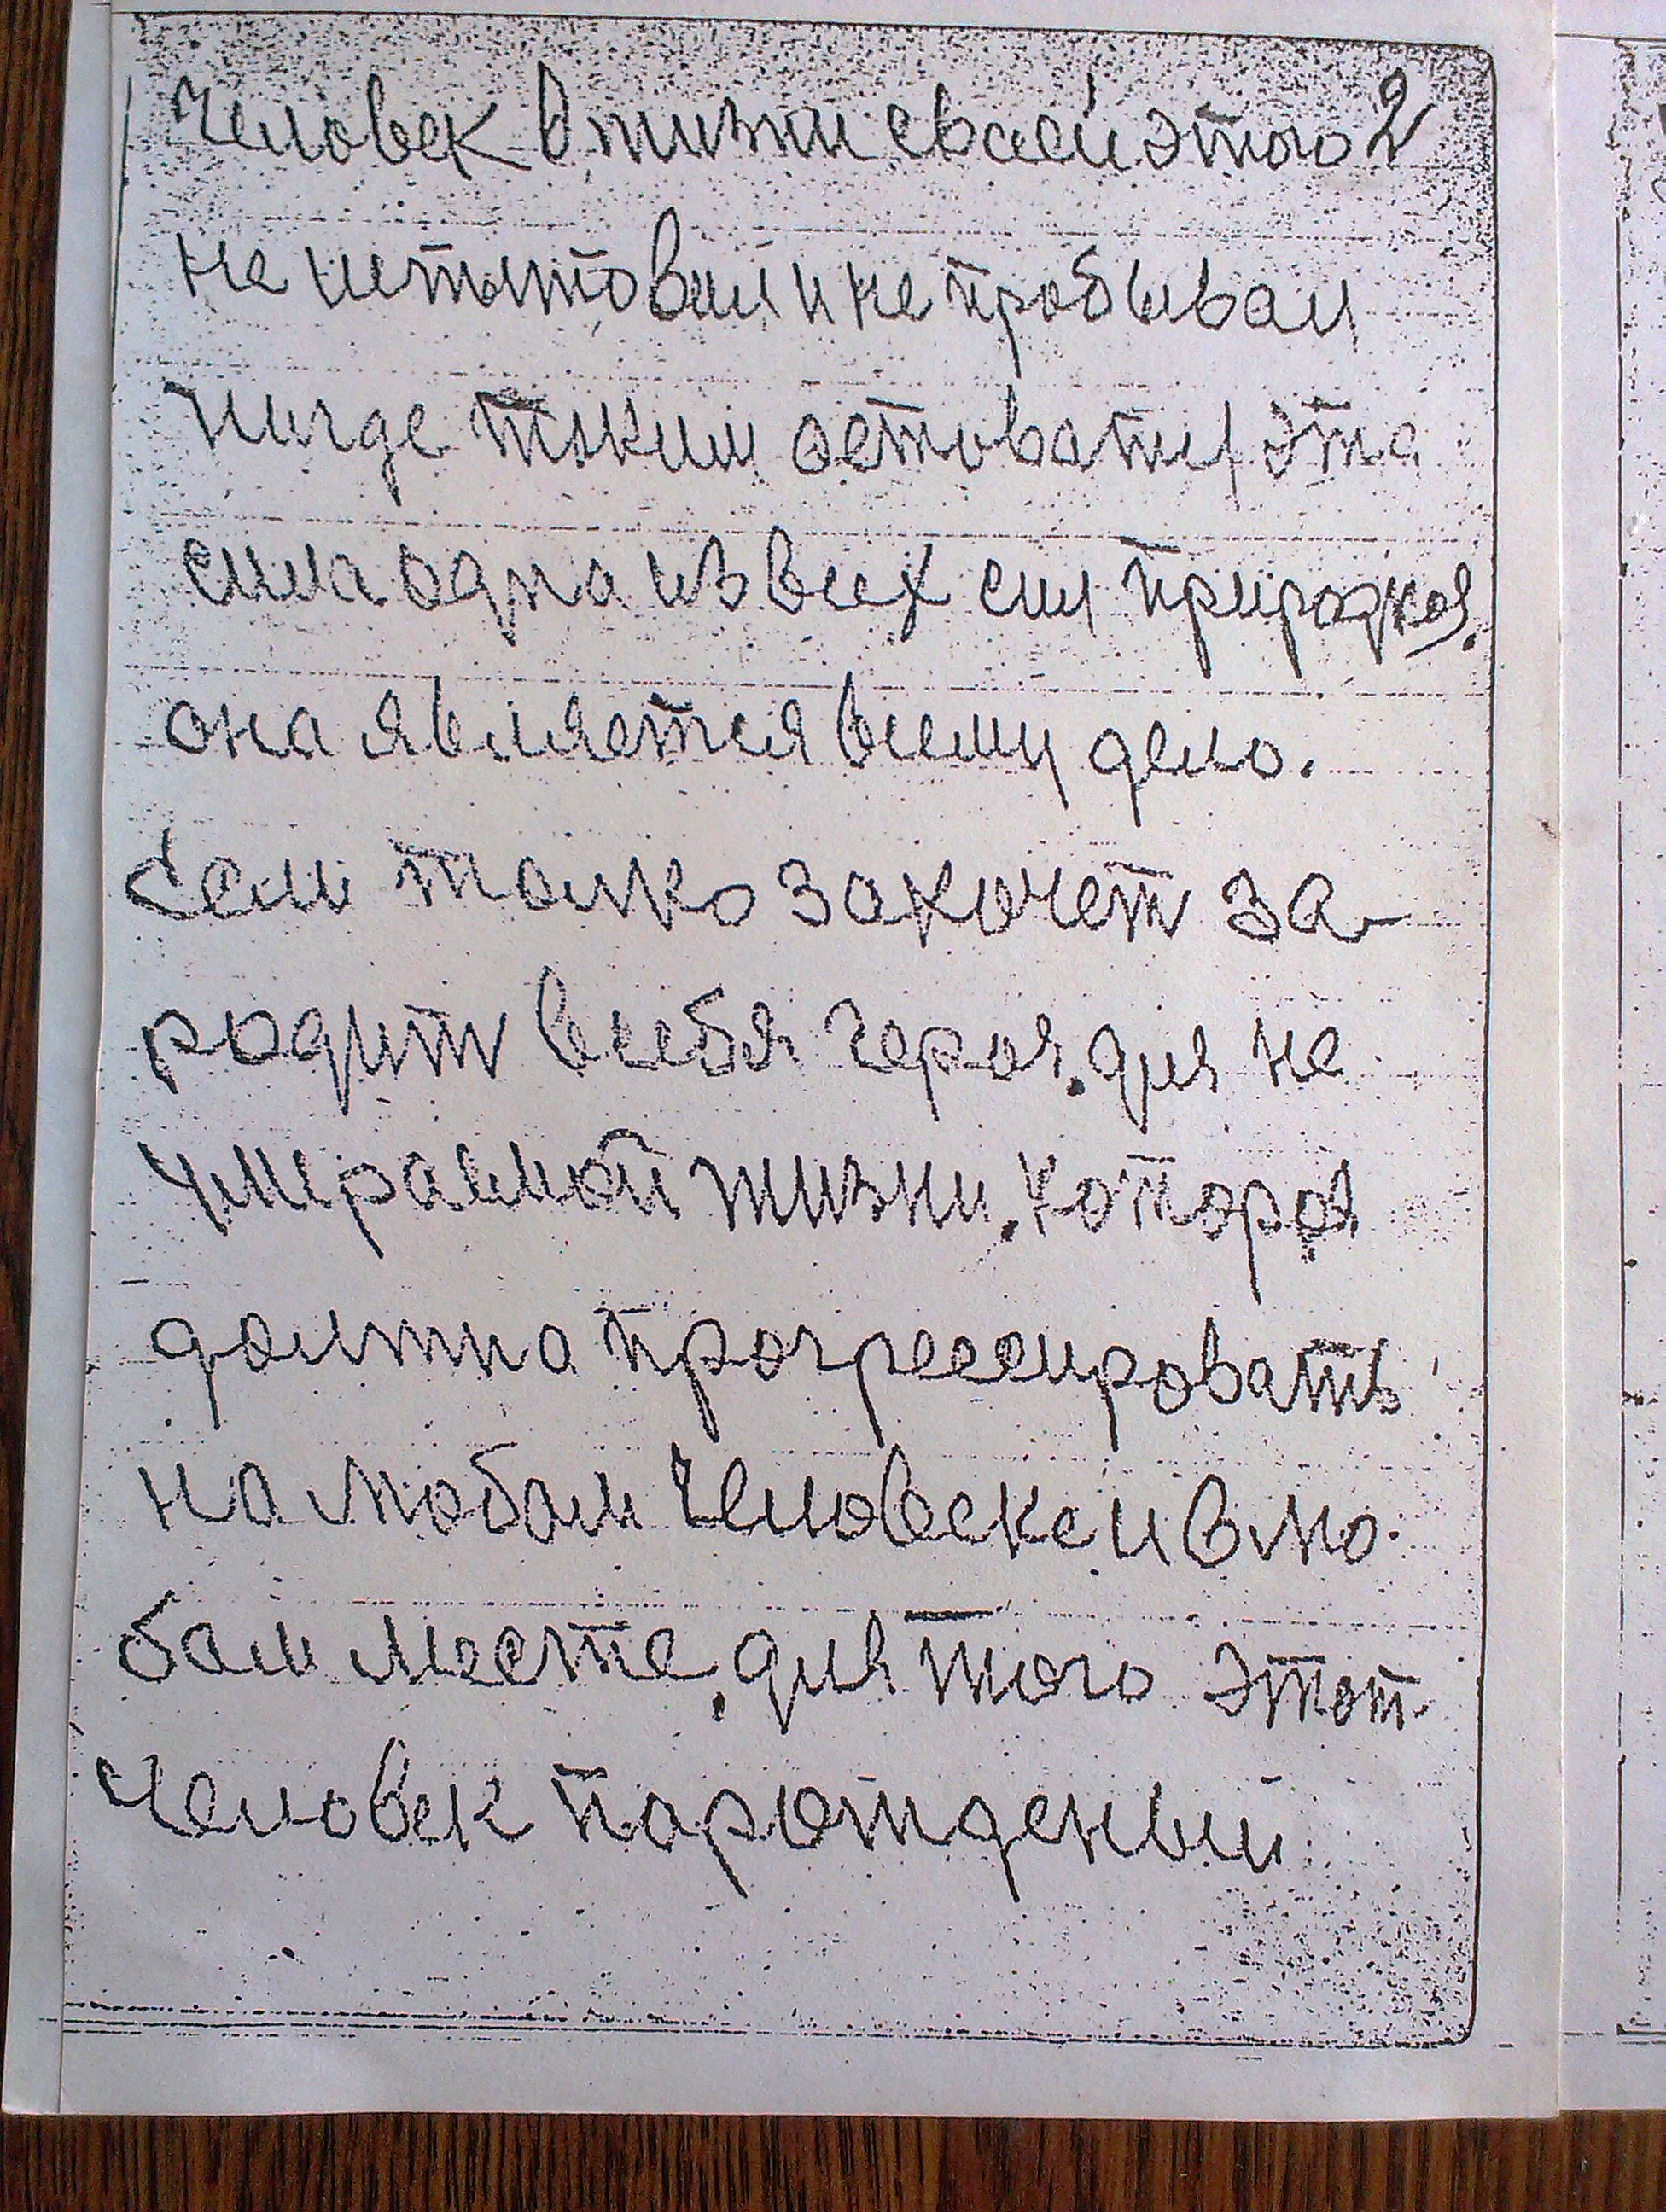 Человек в жизни сваей этого 2
не испытовал и не пробывал
нигде таким оставатся эта
сила одна из всех сил природная.
она является всему дело.
Если толко захочет за-
родит в себя героя, для не
умираемой жизни, которая
должна прогрессировать
на любом человеке и в лю-
бом месте, для того этот
человек парожденый